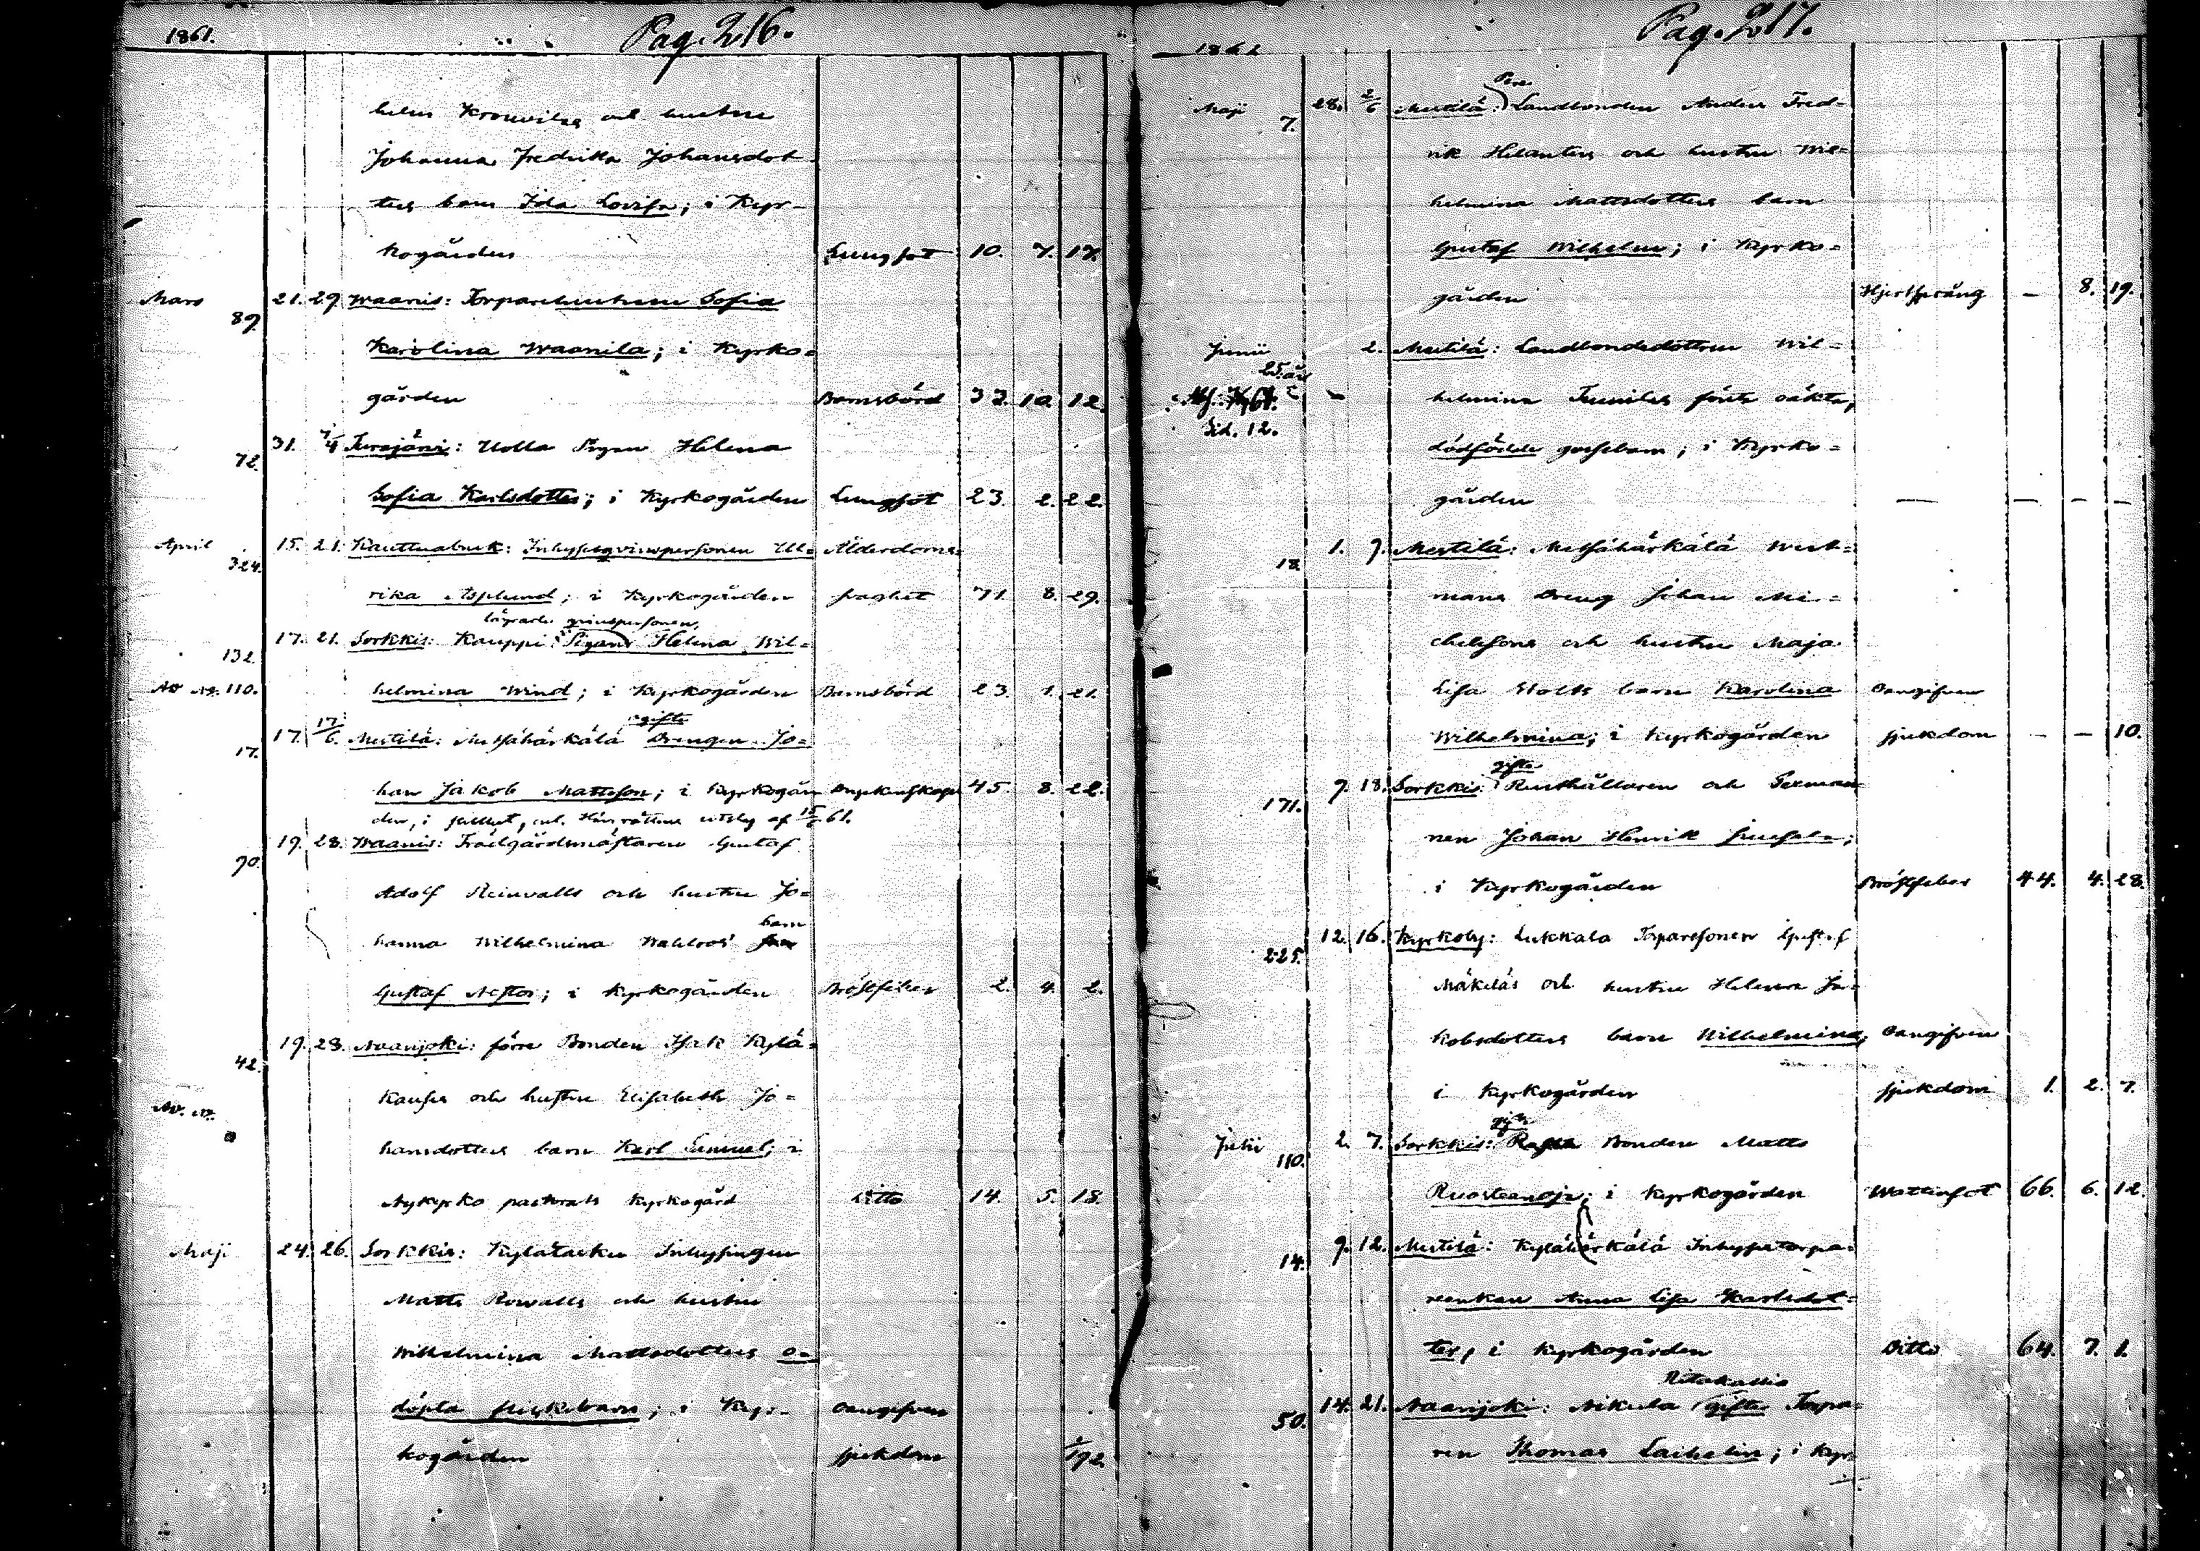 1861. Pag. 216.
helm Kronvilas och hustru
Johanna Fredrika Johansdot-
ters barn Ida Lovisa; i Kyr-
kogården Lungsot 10. 7. 17.
Mars 89. 21. 29. Waanis: Torparehustrun Sofia
Karolina Waanila; i Kyrko-
gården Barnsbörd 37. 10. 12.
72. 31. 7/4 Turajärvi: Uolla Pigan Helena
Sofia Karlsdotter; i Kyrkogården Lungsot 23. 2. 22.
April 324. 15. 21. Kauttuabruk: Inhysesqvinspersonen Ul- Ålderdoms-
rika Asplund; i Kyrkogården svaghet 71. 8. 29.
lägrade qvinspersonen
132. 17. 21. Sorkkis: Kauppi: Pigan Helena Wil-
No 110. helmina Wind; i Kyrkogården Barnsbörd 23. 1. 21.
ogifte
17. 17. 17/6. Mestilä: Metsähärkälä Drengen Jo-
han Jakob Mattsson; i Kyrkogår- 45. 8. 22.
den, i stillhet, enl. utslag af 61.
70. 19. 28. Waanis: Trädgårdsmästaren Gustaf
Adolf Reinvalls och hustru Jo-
barn
hanna Wilhelmina Wahlroos'
Gustaf Nestor; i Kyrkogården Bröstfeber 2. 4. 2.
42. 19. 28. Naarjoki: förre Bonden Isak Kylä-
och hustru Elisabeth Jo-
hansdotters barn Karl Emmuel; i
Nykyrko pastorats Kyrkogård Ditto 14. 5. 18.
Maji 24. 26. Sorkkis: Inhysingen
Matts och hustru
Wilhelmina Mattsdotters o-
döpta flickebarn; i Kyr- Oangifven
kogården sjukdom 1/192.
1861 Pag. 217.
Maji 7. 28. 2/6 Mestilä: Landbonden Anders Fred-
rik Helanders och hustru Wil-
helmina Mattsdotters barn
Gustaf Wilhelm; i Kyrko-
gården Hjertsprång — 8. 19.
Junii 2. Mestilä: Landbondedottern Wil-
25 år
helmina förste oäkta,
Sid. 12.
dödfödde gossebarn; i Kyrko-
gården — — — —
18. 1. 7. Mestilä: Metsähärkälä West-
mans Dreng Johan Mi-
chelssons och hustru Maja
Lisa barn Karolina Oangifven
Wilhelmina; i Kyrkogården sjukdom — — 10.
gifte
171. 7. 18. Sorkkis: Rusthållaren och Sexman-
nen Johan Henrik
i Kyrkogården Bröstfeber 44. 4. 28.
225. 12. 16. Kyrkoby: Lukkala Torparesonen Gustaf
Mäkeläs och hustru Helena Ja-
kobsdotters barn Wilhelmina; Oangifven
i Kyrkogården sjukdom 1. 2. 7.
gifte
Julii 110. 2. 7. Sorkkis: Bonden Matts
Ruosteenoja; i Kyrkogården Wattusot 66. 6. 12.
14. 9. 12. Mestilä: Kylähärkälä Inhysetorpa-
reenkan Anna Lisa Karlsdot-
ter; i Kyrkogården Ditto 64. 7. 1.
Ritakallio
50. 14. 21. Naarjoki: Nikula gifte Torpa-
ren Thomas Laihelin; i Kyr-